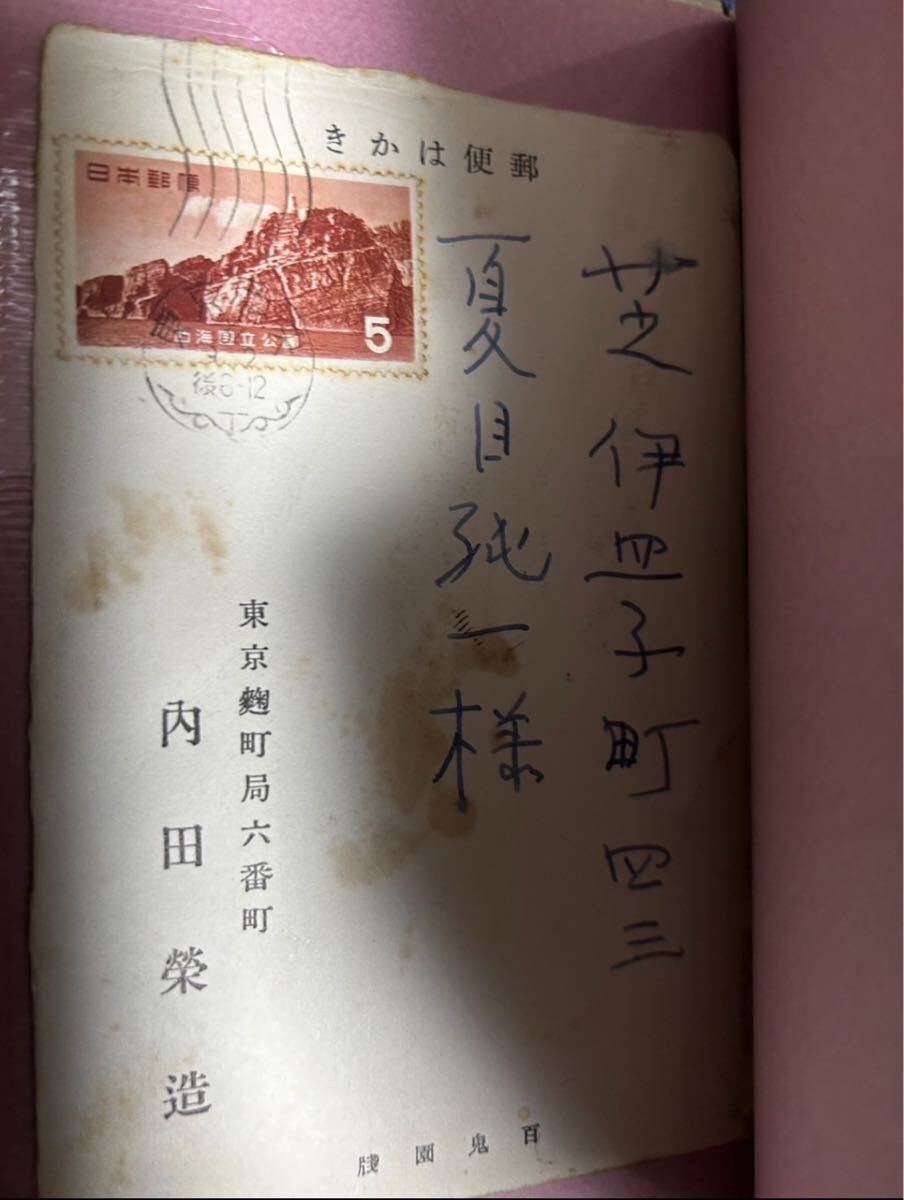 郵便はかき
芝伊皿子町四三
夏目純一様
日本郵便
西海国立公園
5
後6-12
東京麴町局六番町
內田榮造
百鬼園牋